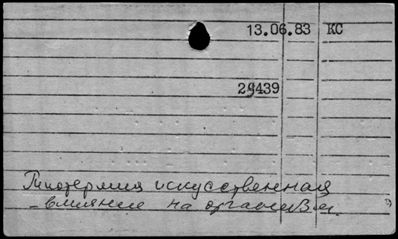 13.06.83 КС
29439
Гипотермия искусственная
- влияние на организм.